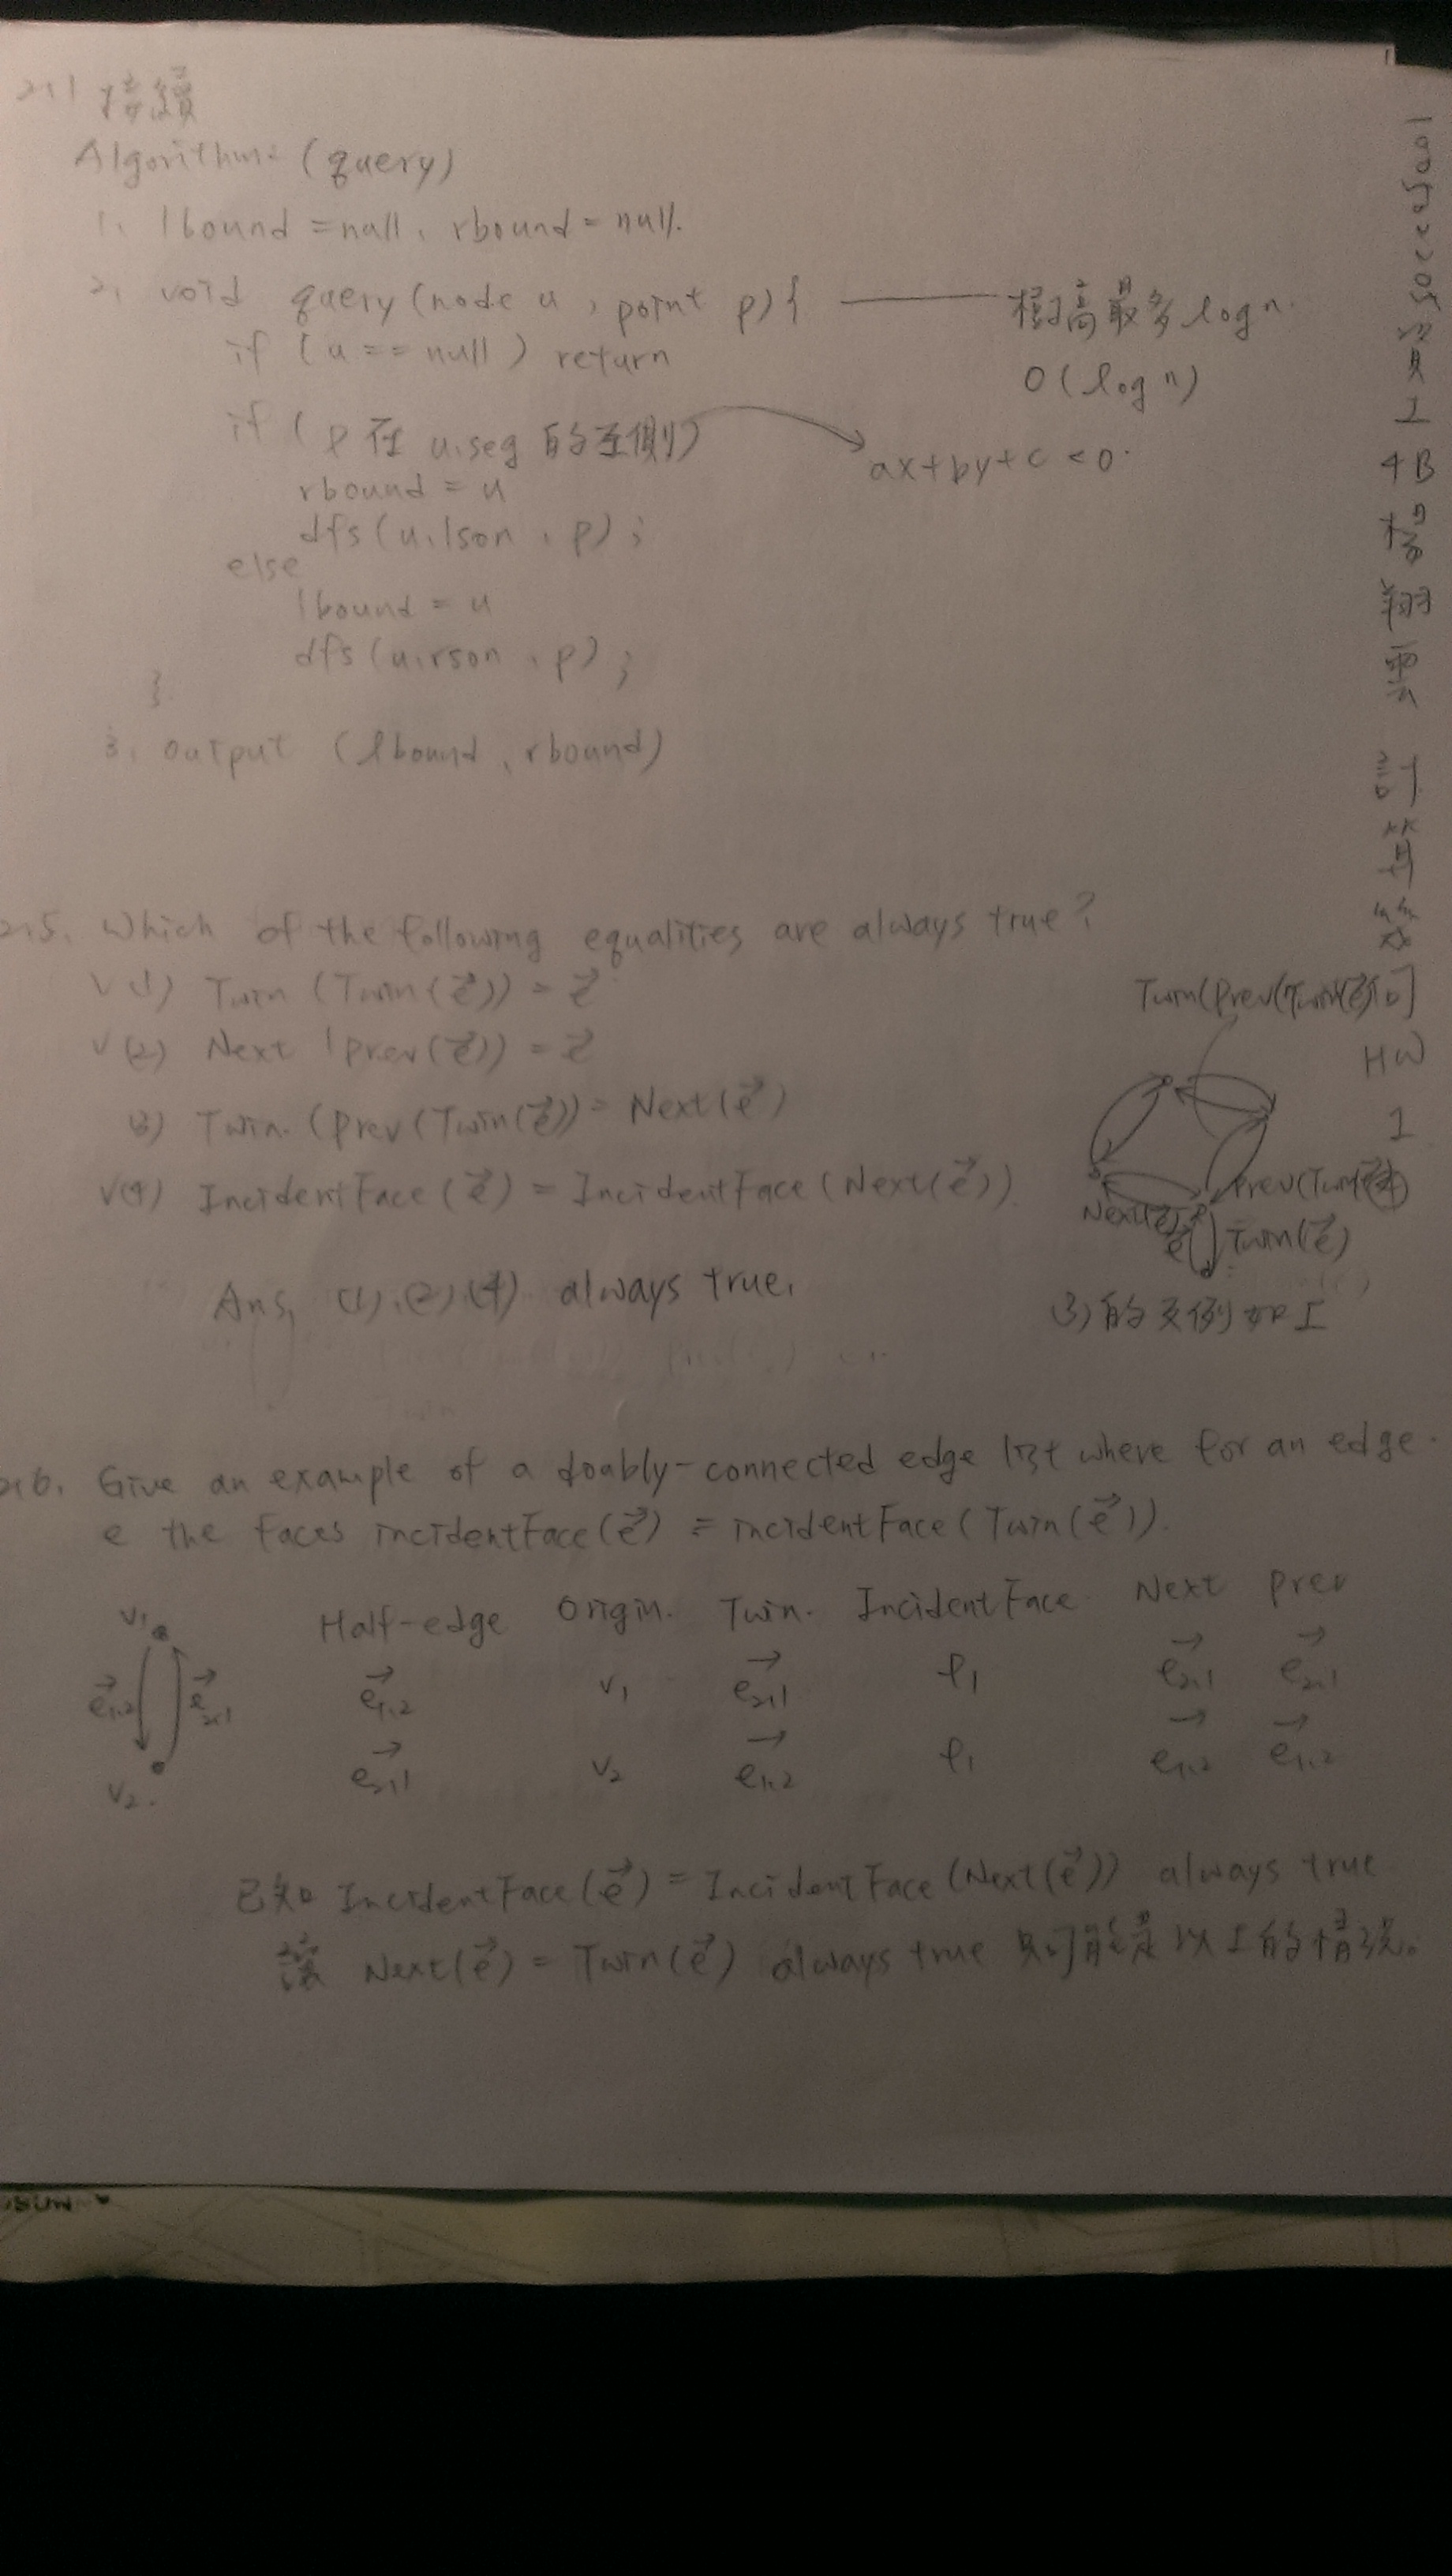 2.1 接續
Algorithm: (query)
1. lbound = null, rbound = null.
2. void query (node u, point p) { 樹高最多 log n.
if (u == null) return
O(log n)
if (p 在 u.seg 的左側)
ax+by+c < 0.
rbound = u
dfs(u.lson, p);
else
lbound = u
dfs(u.rson, p);
}
3. output (lbound, rbound)
2.5. Which of the following equalities are always true?
V (1) Twin (Twin(e⃗)) = e⃗
V (2) Next (prev(e⃗)) = e⃗
(3) Twin. (Prev (Twin(e⃗)) = Next(e⃗)
V (4) IncidentFace(e⃗) = IncidentFace(Next(e⃗))
Ans, (1).(2).(4) always true.
Twin(Prev(Twin(e⃗)))
Prev(Twin(e⃗))
Next(e⃗)
e⃗ Twin(e⃗)
(3) 的反例如上
2.6. Give an example of a doubly-connected edge list where for an edge
e the faces incidentFace(e⃗) = incidentFace(Twin(e⃗)).
Half-edge Origin. Twin. IncidentFace Next prev
e⃗1.2 v1 e⃗2.1 f1 e⃗2.1 e⃗2.1
e⃗2.1 v2 e⃗1.2 f1 e⃗1.2 e⃗1.2
v1
e⃗1.2 e⃗2.1
v2.
已知 IncidentFace(e⃗) = IncidentFace(Next(e⃗)) always true
讓 Next(e⃗) = Twin(e⃗) always true 只可能是以上的情況。
資工4B
計算幾何
HW 1